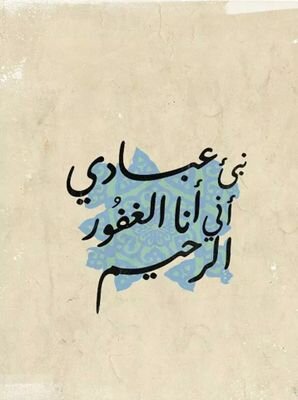 نبئ عبادي
أني أنا الغفُور
الرحيم